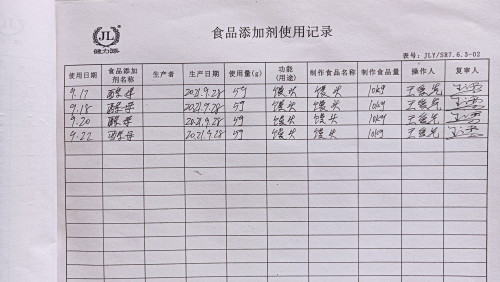 JL
健力源
食品添加剂使用记录
表号: JLY/SR7.6.3-02
使用日期 食品添加剂名称 生产者 生产日期 使用量(g) 功能(用途) 制作食品名称 制作食品量 操作人 复审人
9.17 酵母 2021.9.28 5g 馒头 馒头 10kg
9.18 酵母 2021.9.28 5g 馒头 馒头 10kg
9.20 酵母 2021.9.28 5g 馒头 馒头 10kg
9.22 酵母 2021.9.28 5g 馒头 馒头 10kg